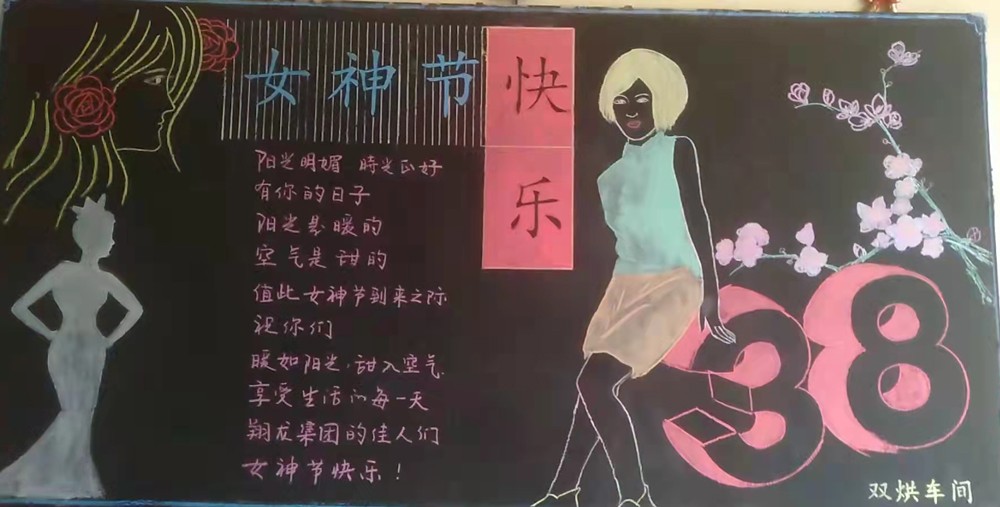 女神节
快
乐
阳光明媚 時光正好
有你的日子
阳光是暖的
空气是甜的
值此女神节到来之际
祝你们
暖如阳光,甜入空气
享受生活的每一天
翔龙集团的佳人们
女神节快乐!
38
双烘车间